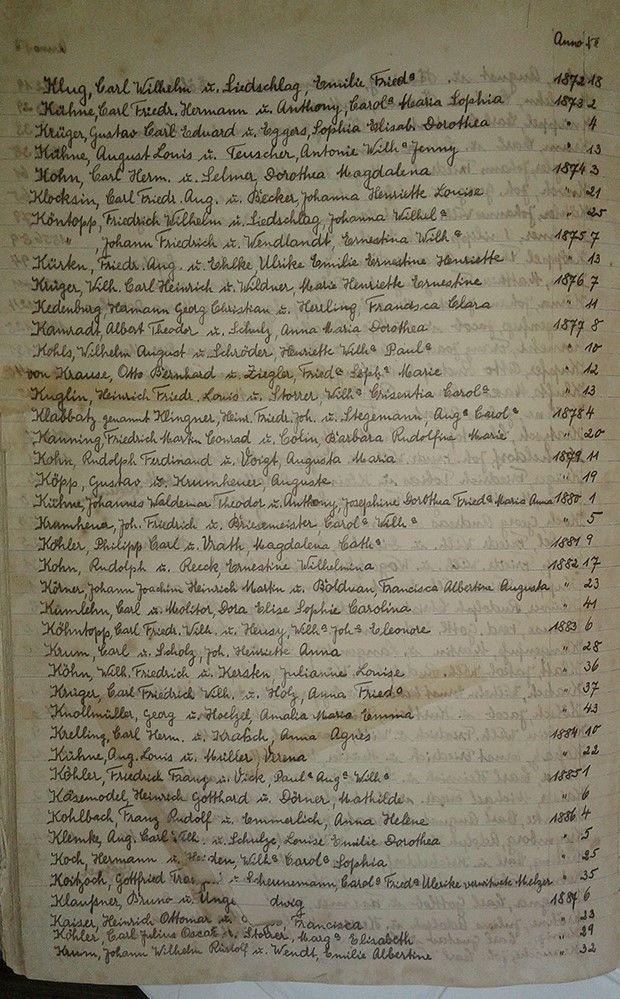 Anno №
Klug, Carl Wilhelm u. Liedschlag, Emilie Friedᵃ 1872 18
Kühne, Carl Friedr. Hermann u. Anthony, Carolᵃ Maria Sophia 1873 2
Krüger, Gustav Carl Eduard u. Eggers, Sophia Elisab. Dorothea " 4
Kühne, August Louis u. Teuscher, Antonie Wilhᵃ Jenny " 13
Kohn, Carl Herm. u. Selmer, Dorothea Magdalena 1874 3
Klocksin, Carl Friedr. Aug. u. Becker, Johanna Henriette Louise " 21
Köntopp, Friedrich Wilhelm u. Liedschlag, Johanna Wilhelᵃ " 25
" , Johann Friedrich u. Wendlandt, Ernestina Wilhᵃ 1875 7
Kürten, Friedr. Aug. u. Ehlke Ulrike Emilie Ernestine Henriette " 13
Krüger, Wilh. Carl Heinrich u. Wildner, Marie Henriette Ernestine 1876 7
Kedenburg, Hermann Georg Christian u. Herling, Francisca Clara " 11
Kamradt, Albert Theodor u. Schulz, Anna Maria Dorothea 1877 8
Kohls, Wilhelm August u. Schröder, Henriette Wilhᵃ Paulᵃ " 10
von Krause, Otto Bernhard u. Ziegler, Friedᵃ Sophᵃ Marie " 12
Kuglin, Heinrich Friedr. Louis u. Storrer, Wilhᵃ Crisentia Carolᵃ " 13
Klabbatz genannt Klingner, Heinr. Friedr. Joh. u. Stegemann, Augᵃ Carolᵃ 1878 4
Kanning, Friedrich Martin Conrad u. Cölin, Barbara Rudolfine Marie " 20
Kohn, Rudolph Ferdinand u. Voigt, Augusta Maria 1879 11
Köpp, Gustav u. Krumheuer, Auguste " 19
Kühne, Johannes Waldemar Theodor u. Anthony, Josephine Dorothea Friedᵃ Maria Anna 1880 1
Krumheua, Joh. Friedrich u. Briesemeister, Carolᵃ Wilhᵃ " 5
Köhler, Philipp Carl u. Vrath, Magdalena Cathᵃ 1881 9
Kohn, Rudolph u. Reeck, Ernestine Wilhelmina 1882 17
Körner, Johann Joachim Heinrich Martin u. Bolduan, Francisca Albertine Augusta " 23
Kumlehn, Carl u. Molitor, Dora Elise Sophie Carolina " 41
Köhntopp, Carl Friedr. Wilh. u. Heusy, Wilhᵃ Johᵃ Eleonore 1883 6
Krum, Carl u. Scholz, Joh. Henriette Anna " 28
Köhn, Wilh. Friedrich u. Kersten, Julianne Louise " 36
Krüger, Carl Friedrich Wilh. u. Holz, Anna Friedᵃ " 37
Knollmüller, Georg u. Hoelzel, Amalia Maria Emma " 43
Krelling, Carl Herm. u. Kratsch, Anna Agnes 1884 10
Kühne, Aug. Louis u. Müller, Verena " 22
Köhler, Friedrich Franz u. Vick, Paulᵃ Augᵃ Wilhᵃ 1885 1
Käsemodel, Heinrich Gotthard u. Dörner, Mathilde " 6
Kohlbach, Franz Rudolf u. Emmerlich, Anna Helene 1886 4
Klemke, Aug. Carl u. Schulze, Louise Emilie Dorothea " 5
Koch, Hermann u. Wilhᵃ Carolᵃ Sophia " 25
Koitzsch, Gottfried u. Scheunemann, Carolᵃ Friedᵃ Ulrike verwitwete Melzer " 35
Klaußner, Bruno u. 1887 6
Kaiser, Heinrich Ottomar u. Francisca " 23
Köhler, Carl Julius Oscar u. Storrer, Margᵃ Elisabeth " 29
Krum, Johann Wilhelm Rudolf u. Wendt, Emilie Albertine " 32